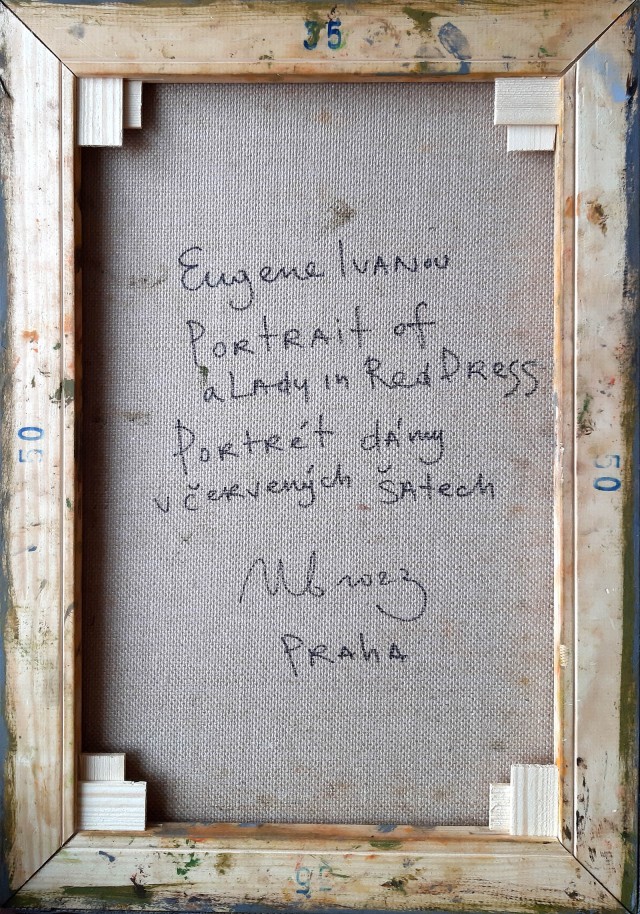 35
Eugene Ivanov
Portrait of
a Lady in Red Dress
Portrét dámy
v červených šatech
50
50
Praha